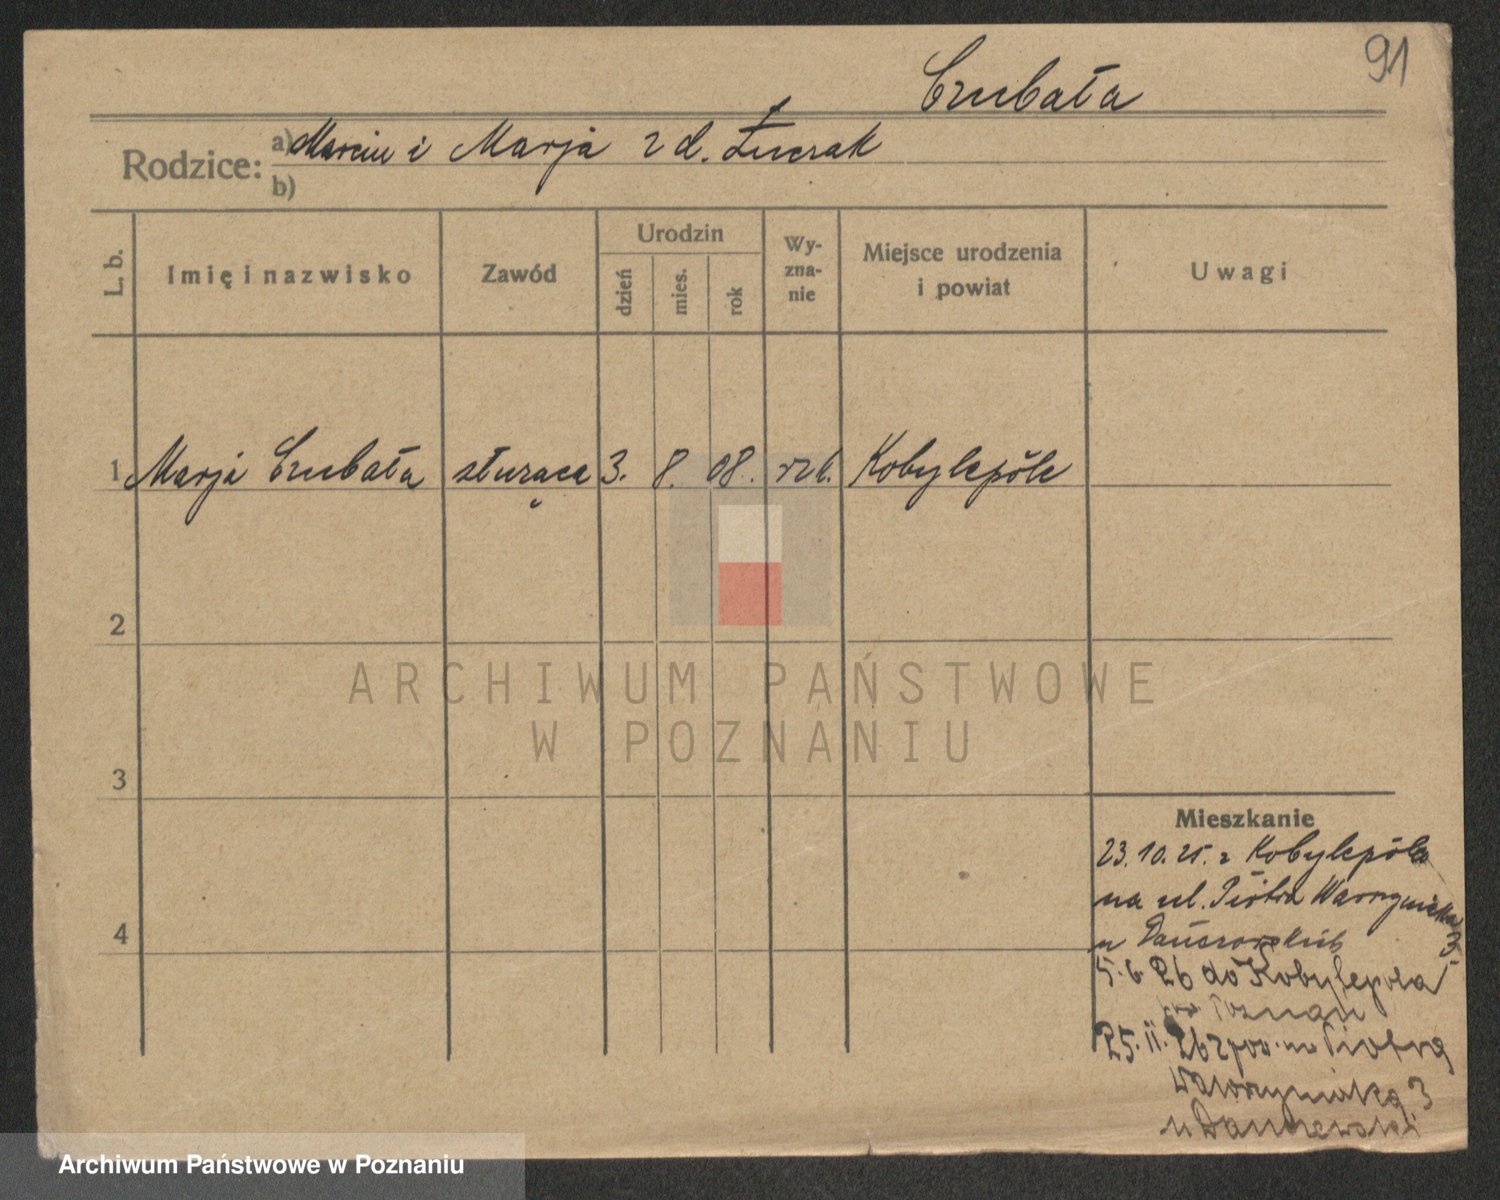 91
Czubała
Rodzice: a) Marcin i Marja z d. Łuczak
b)
L. b. Imię i nazwisko Zawód Urodzin dzień mies. rok Wyznanie Miejsce urodzenia i powiat Uwagi
1 Marja Czubała służąca 3. 8. 08. rzk. Kobylepôle
2
ARCHIWUM PAŃSTWOWE
W POZNANIU
3
4
Mieszkanie
23.10.25. z Kobylepôla
na ul. Piotra Wawrzyniaka 3
u
5.6.26 do Kobylepola
Poznań
25.11.26 z pow. na Piotra
Wawrzyniaka 3
u
Archiwum Państwowe w Poznaniu